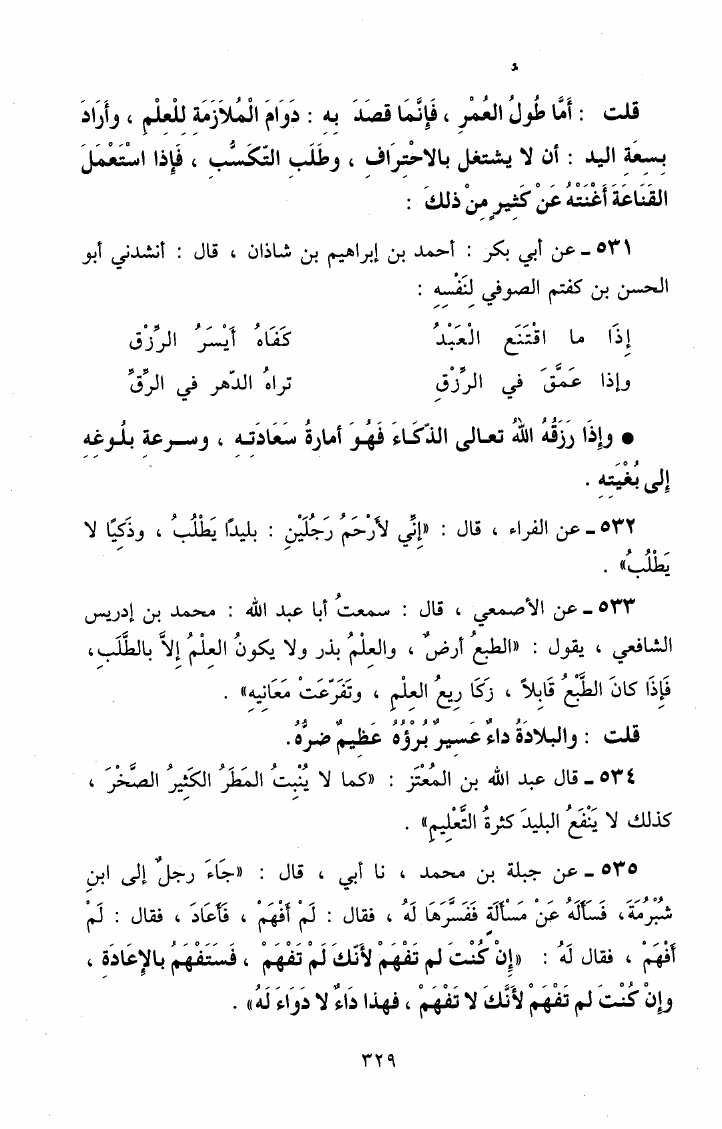 قلت : أَمَّا طُولُ العُمْرِ ، فَإِنَّمَا قصَدَ بِهِ : دَوَامَ الْمُلَازَمَةِ لِلْعِلْمِ ، وأَرَادَ
بِسعَةِ اليد : أن لا يشتغل بالاحْتِرَافِ ، وطَلَبِ التّكسُّبِ ، فَإِذا اسْتَعْمَلَ
القَنَاعَةَ أَغْنَتْهُ عَنْ كَثِيرٍ مِنْ ذلكَ :
٥٣١ ـ عن أبي بكر : أحمد بن إبراهيم بن شاذان ، قال : أنشدني أبو
الحسن بن كفتم الصوفي لِنَفْسِهِ :
إِذَا ما اقْتَنَع الْعَبْدُ كَفَاهُ أَيْسَرُ الرِّزْق
وإذا عَمَّقَ في الرِّزْقِ تراهُ الدّهر في الرِّقِّ
● وإِذَا رَزَقُهُ اللهُ تعالى الذّكَاءَ فَهُوَ أمارةُ سَعَادَتِه ، وسرعةِ بلُوغِهِ
إلى بُغْيَتِهِ .
٥٣٢ ـ عن الفراء ، قال : «إِنِّي لأَرْحَمُ رَجُلَيْنِ : بليدًا يَطْلُبُ ، وذَكِيًا لا
يَطْلُبُ» .
٥٣٣ ـ عن الأصمعي ، قال : سمعتُ أبا عبد الله : محمد بن إدريس
الشافعي ، يقول : «الطبعُ أرضٌ ، والعلْمُ بذر ولا يكونُ العِلْمُ إِلاَّ بالطَّلَبِ،
فَإِذَا كانَ الطَّبْعُ قَابِلاً ، زَكَا رِيعُ العِلْمِ ، وتَفَرّعَتْ مَعَانِيهِ» .
قلت : والبلادَةُ داءٌ عَسِيرٌ بُرْؤُهُ عَظِيمٌ ضرُّهُ.
٥٣٤ ـ قال عبد الله بن المُعْتَز : «كما لا يُنْبِتُ المَطَرُ الكَثِيرُ الصَّخْرَ ،
كذلك لا يَنْفَعُ البليدَ كثرةُ التَّعْلِيمِ» .
٥٣٥ ـ عن جبلة بن محمد ، نا أبي ، قال : «جَاءَ رجلٌ إلى ابنِ
شُبْرُمَةَ، فَسَأَلَهُ عَنْ مَسْأَلَةٍ فَفَسَّرَهَا لَهُ ، فقال : لَمْ أَفْهَمْ ، فَأَعَادَ ، فقال : لَمْ
أَفْهَمْ ، فقال لَهُ : «إِنْ كُنْتَ لم تَفْهَمْ لأَنّكَ لَمْ تَفْهَمْ ، فَسَتَفْهَمُ بالإِعَادَةِ ،
وإِنْ كُنْتَ لم تَفْهَمْ لأَنَّكَ لا تَفْهَمْ ، فهذا دَاءٌ لا دَوَاءَ لَهُ» .
٣٢٩